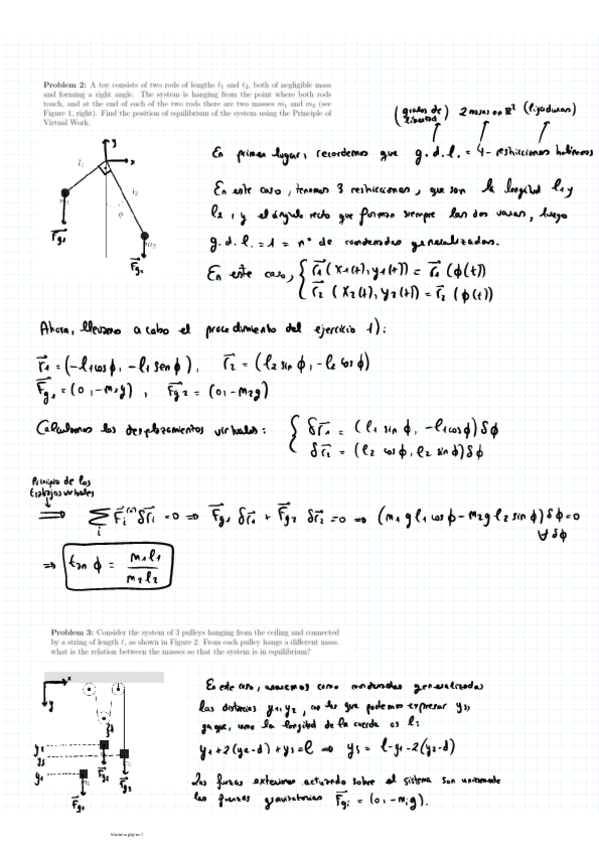 Problem 2: A toy consists of two rods of lengths ℓ₁ and ℓ₂, both of negligible mass
and forming a right angle. The system is hanging from the point where both rods
touch, and at the end of each of the two rods there are two masses m₁ and m₂ (see
Figure 1, right). Find the position of equilibrium of the system using the Principle of
Virtual Work.
(grados de libertad) 2 masas en R² (ligaduras)
En primer lugar, recordemos que g.d.l. = 4 - restricciones holónomas
En este caso, tenemos 3 restricciones, que son la longitud l₁ y
l₂, y el ángulo recto que forman siempre las dos varas, luego
g.d.l. = 1 = nº de coordenadas generalizadas.
En este caso, { r₁(x₁(t), y₁(t)) = r₁(ϕ(t))
r₂(x₂(t), y₂(t)) = r₂(ϕ(t))
y
x
ℓ₁
ℓ₂
m₂
Fg₁
Fg₂
Ahora, llevamos a cabo el procedimiento del ejercicio 1):
r₁ = (-l₁cosϕ, -l₁ senϕ), r₂ = (l₂ sin ϕ, -l₂ cos ϕ)
Fg₁ = (0, -m₁g), Fg₂ = (0, -m₂g)
Calculamos los desplazamientos virtuales: { δr₁ = (l₁ sin ϕ, -l₁cosϕ)δϕ
δr₂ = (l₂ cos ϕ, l₂ sin ϕ)δϕ
Principio de los
trabajos virtuales
⇒ Σᵢ Fᵢ⁽ᵃ⁾ δrᵢ = 0 ⇒ Fg₁ δr₁ + Fg₂ δr₂ = 0 ⇒ (m₁gl₁cosϕ - m₂gl₂sinϕ)δϕ = 0
∀δϕ
⇒ tan ϕ = m₁l₁ / m₂l₂
Problem 3: Consider the system of 3 pulleys hanging from the ceiling and connected
by a string of length ℓ, as shown in Figure 2. From each pulley hangs a different mass.
what is the relation between the masses so that the system is in equilibrium?
x
y
En este caso, usaremos como coordenadas generalizadas
las distancias y₁, y₂, en las que podemos expresar y₃,
ya que, como la longitud de la cuerda es l:
y₁ + 2(y₂-d) + y₃ = l ⇒ y₃ = l - y₁ - 2(y₂-d)
Las fuerzas externas actuando sobre el sistema son únicamente
las fuerzas gravitatorias Fgᵢ = (0, -mᵢg).
y₂
y₃
y₁
Fg₂
Fg₃
Fg₁